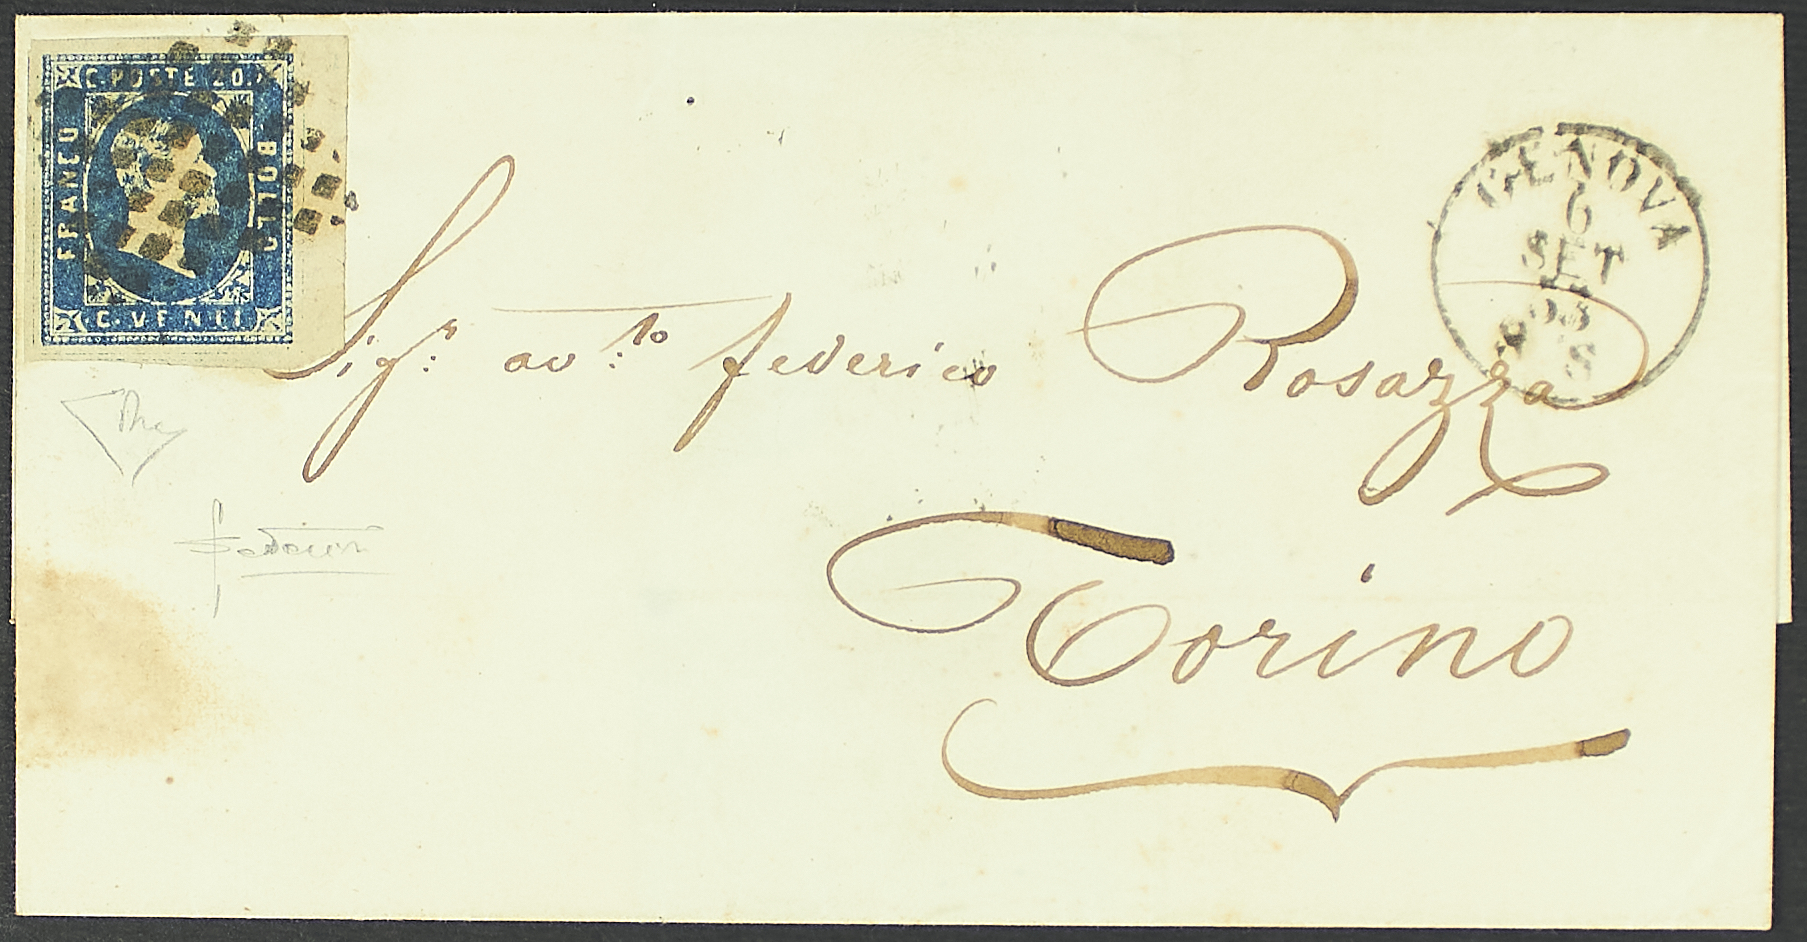 C. POSTE 20.
FRANCO
BOLLO
C. VENTI
GENOVA
6
SET
Sig.r av.to federico Rosazza
Torino